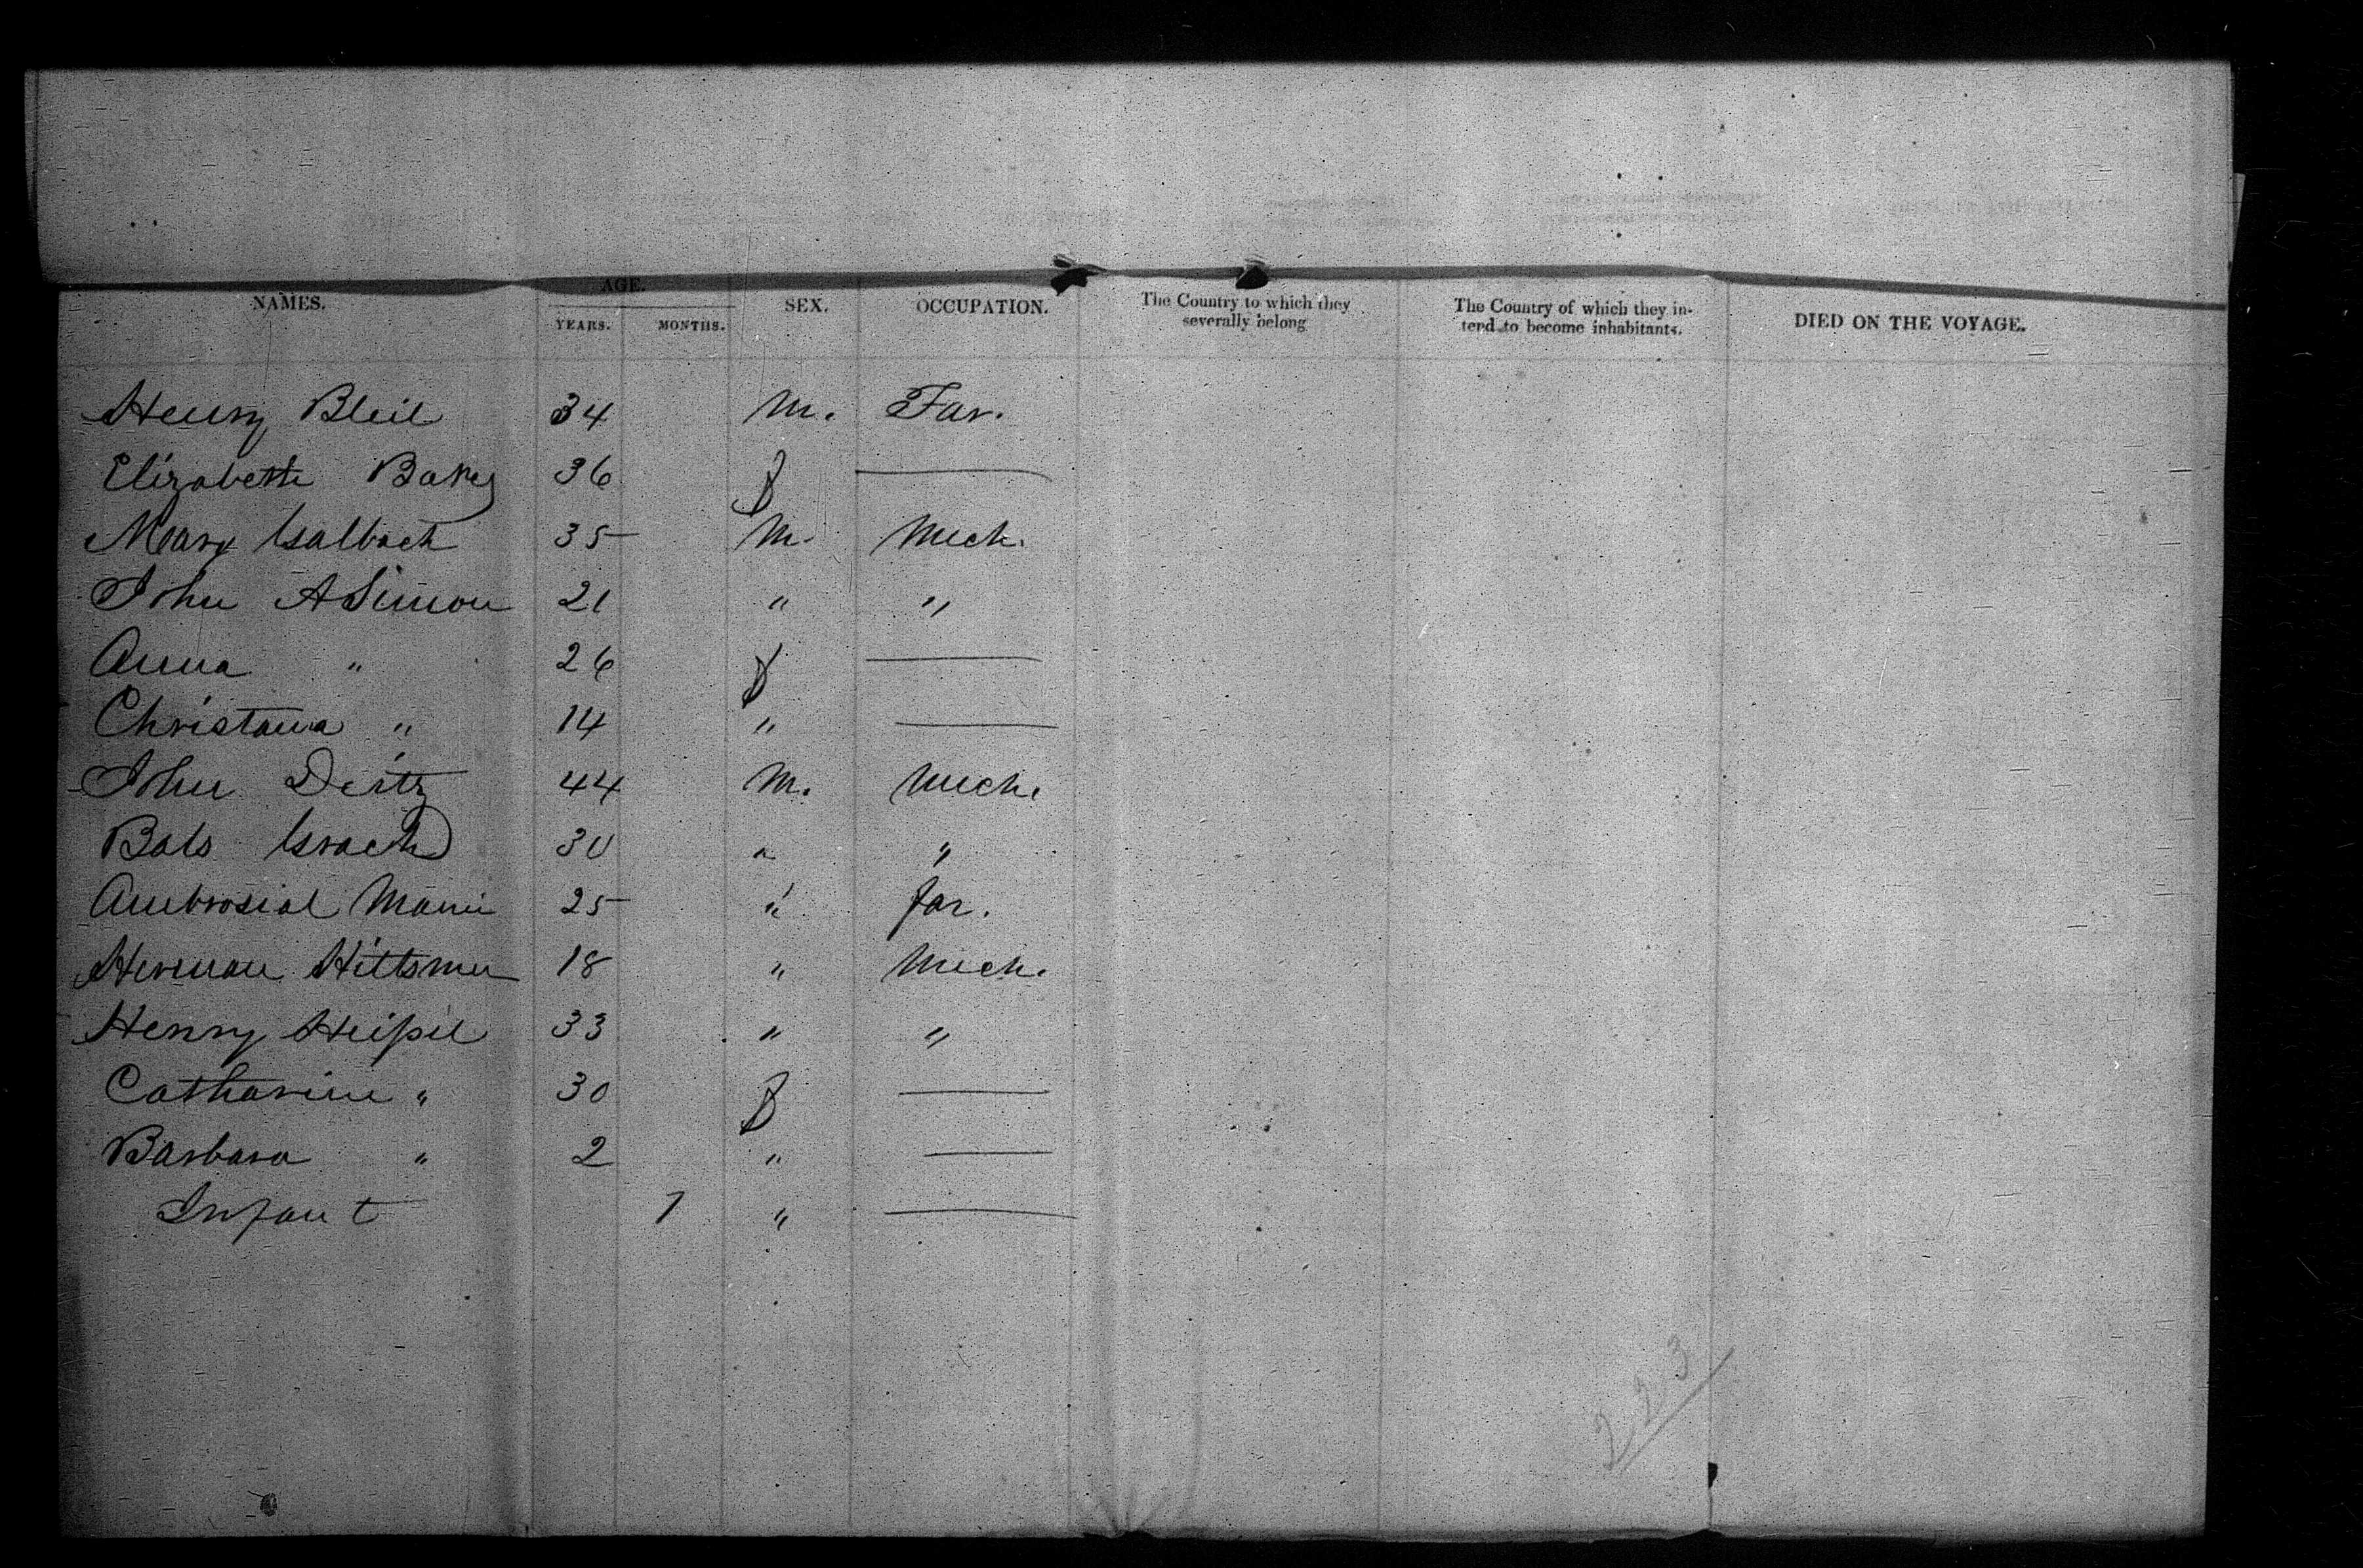 NAMES. AGE. SEX. OCCUPATION. The Country to which they severally belong The Country of which they intend to become inhabitants. DIED ON THE VOYAGE.
YEARS. MONTHS.
Henry Bleil 34 M. Far.
Elizabeth 36 f
Mary Galbach 35 M. Mech.
John A Simon 21 " "
Anna " 26 f
Christana " 14 "
John Deitz 44 M. Mech.
30 " "
Ambrosial 25 " far.
Herman 18 " Mech.
Henry Heissel 33 " "
Catharine " 30 f
Barbara " 2 "
Infant 1 "
223